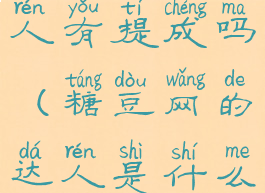 rén yǒu tí chéng ma
人有提成吗
táng dòu wǎng de
（糖豆网的
dá rén shì shí me
达人是什么